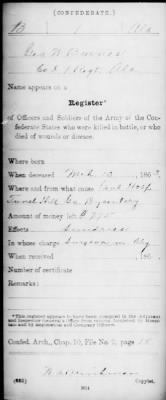 (CONFEDERATE.)
B 1 Ala
Geo W Barnes
Co. 1 Regt. Ala
Name appears on a
Register*
of Officers and Soldiers of the Army of the Con-
federate States who were killed in battle, or who
died of wounds or disease.
Where born
When deceased Mch 10, 186
Where and from what cause Hosp
Tunnel Hill Ga Dysentery
Amount of money left $
Effects Sundries
In whose charge Surgeon in chg
When received , 186
Number of certificate
Remarks:
*This register appears to have been compiled in the Adjutant
and Inspector General's Office from returns furnished by Hospi-
tals and by Regimental and Company Officers.
Confed. Arch., Chap. 10, File No. 2, page 15